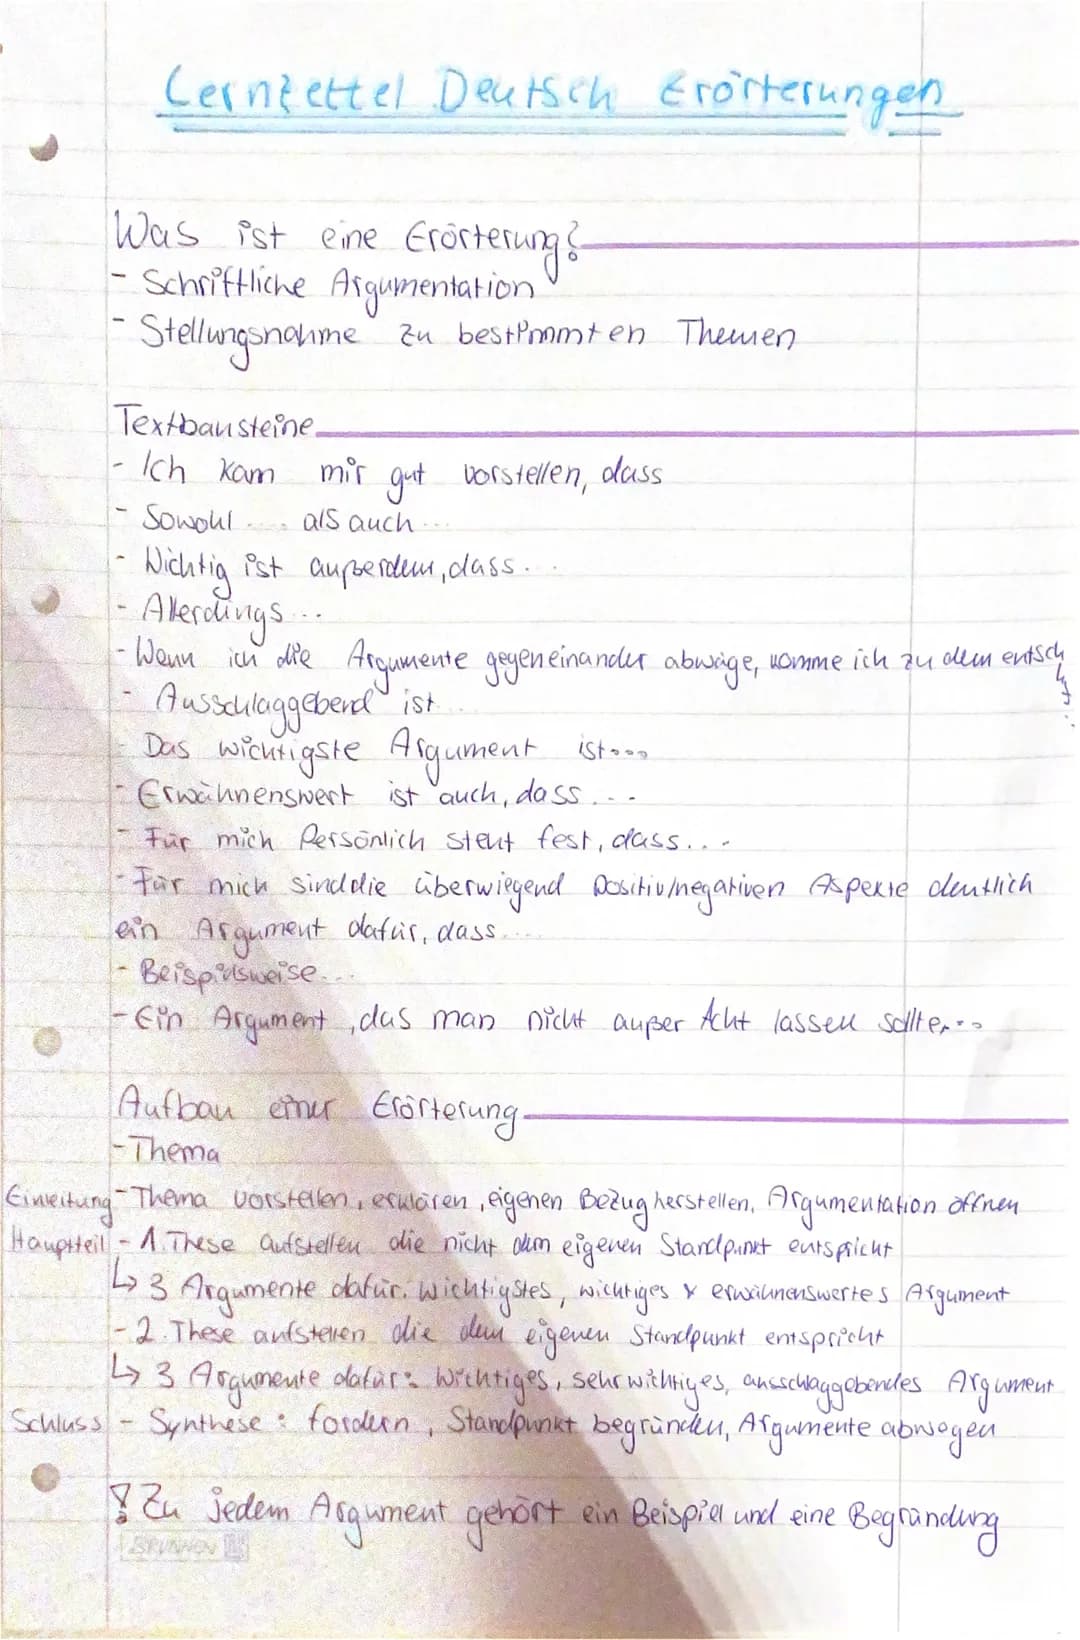 Lernzettel Deutsch Erörterungen
Was ist eine Erörterung?
- Schriftliche Argumentation
- Stellungsnahme zu bestimmten Themen
Textbausteine
- Ich kann mir gut vorstellen, dass
- Sowohl .... als auch ...
- Wichtig ist außerdem, dass ...
- Allerdings ...
- Wenn ich die Argumente gegeneinander abwäge, komme ich zu dem entsch
- Ausschlaggebend ist ...
- Das wichtigste Argument ist....
- Erwähnenswert ist auch, dass ...
- Für mich Persönlich steht fest, dass...
- Für mich sind die überwiegend positiv/negativen Aspekte deutlich
ein Argument dafür, dass ....
- Beispielsweise ...
- Ein Argument, das man nicht außer Acht lassen sollte,...
Aufbau einer Erörterung
- Thema
Einleitung - Thema vorstellen, erklären, eigenen Bezug herstellen, Argumentation öffnen
Hauptteil - 1. These aufstellen die nicht dem eigenen Standpunkt entspricht
↳ 3 Argumente dafür: wichtigstes, wichtiges & erwähnenswertes Argument
- 2. These aufstellen die dem eigenen Standpunkt entspricht
↳ 3 Argumente dafür: Wichtiges, sehr wichtiges, ausschlaggebendes Argument
Schluss - Synthese: fordern, Standpunkt begründen, Argumente abwegen
! Zu jedem Argument gehört ein Beispiel und eine Begründung
BRUNNEN